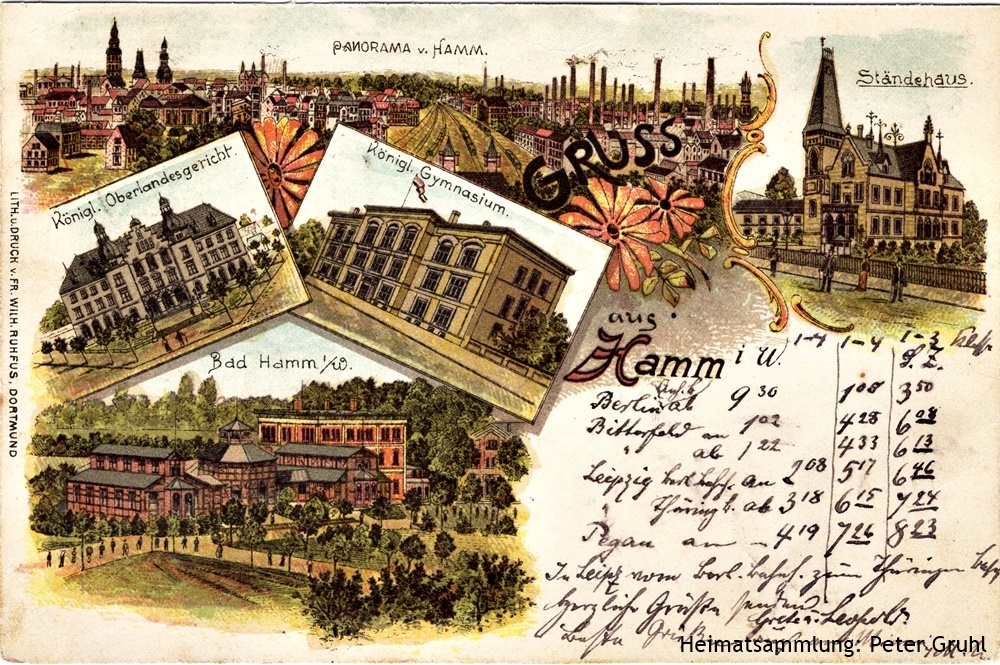 PANORAMA v. HAMM.
Ständehaus.
Königl. Oberlandesgericht.
Königl. Gymnasium.
GRUSS
aus
Hamm i W.
Bad Hamm i/W.
LITH. DRUCK v. FR. WILH. RUHFUS, DORTMUND
1-4 1-4 1-3 Klasse
S. Z.
Berlin ab 9 30 1 00 3 50
Bitterfeld an 1 02 4 28 6 08
" ab 1 22 4 33 6 13
Leipzig berl. bahf. an 2 08 5 17 6 46
" Thüring b. ab 3 18 6 15 7 24
Pegau an - 4 19 7 26 8 23
In Leipz vom berl. bahnh. zum Thüringer
Herzliche Grüße senden
Grete u. Leopold
beste Grüße
Heimatsammlung: Peter Gruhl